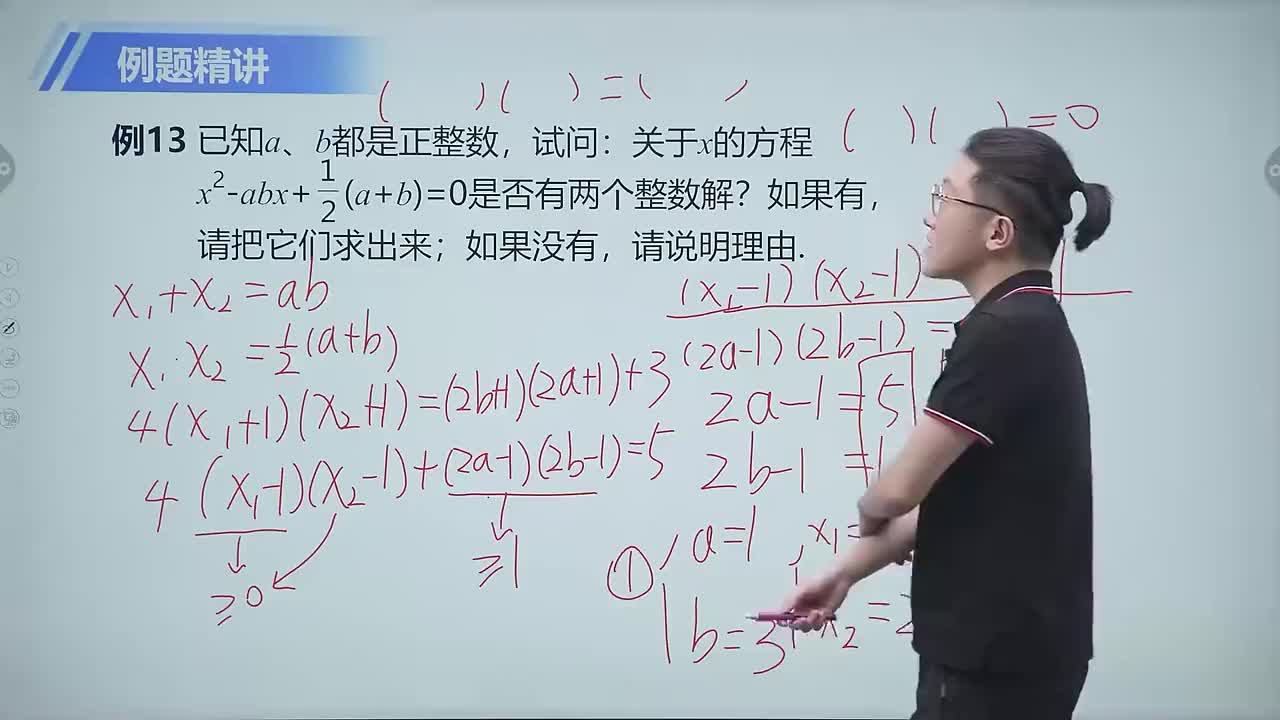 例题精讲
( )( )=( )
( )( )=0
例13 已知a、b都是正整数，试问：关于x的方程
x²-abx+1/2(a+b)=0是否有两个整数解？如果有，
请把它们求出来；如果没有，请说明理由.
x₁+x₂=ab
x₁·x₂=1/2(a+b)
4(x₁+1)(x₂+1)=(2b+1)(2a+1)+3
4(x₁-1)(x₂-1)+(2a-1)(2b-1)=5
≥0
≥1
(x₁-1)(x₂-1)
(2a-1)(2b-1)=
2a-1=5
2b-1=1
① a=1 x₁=
b=3 x₂=2